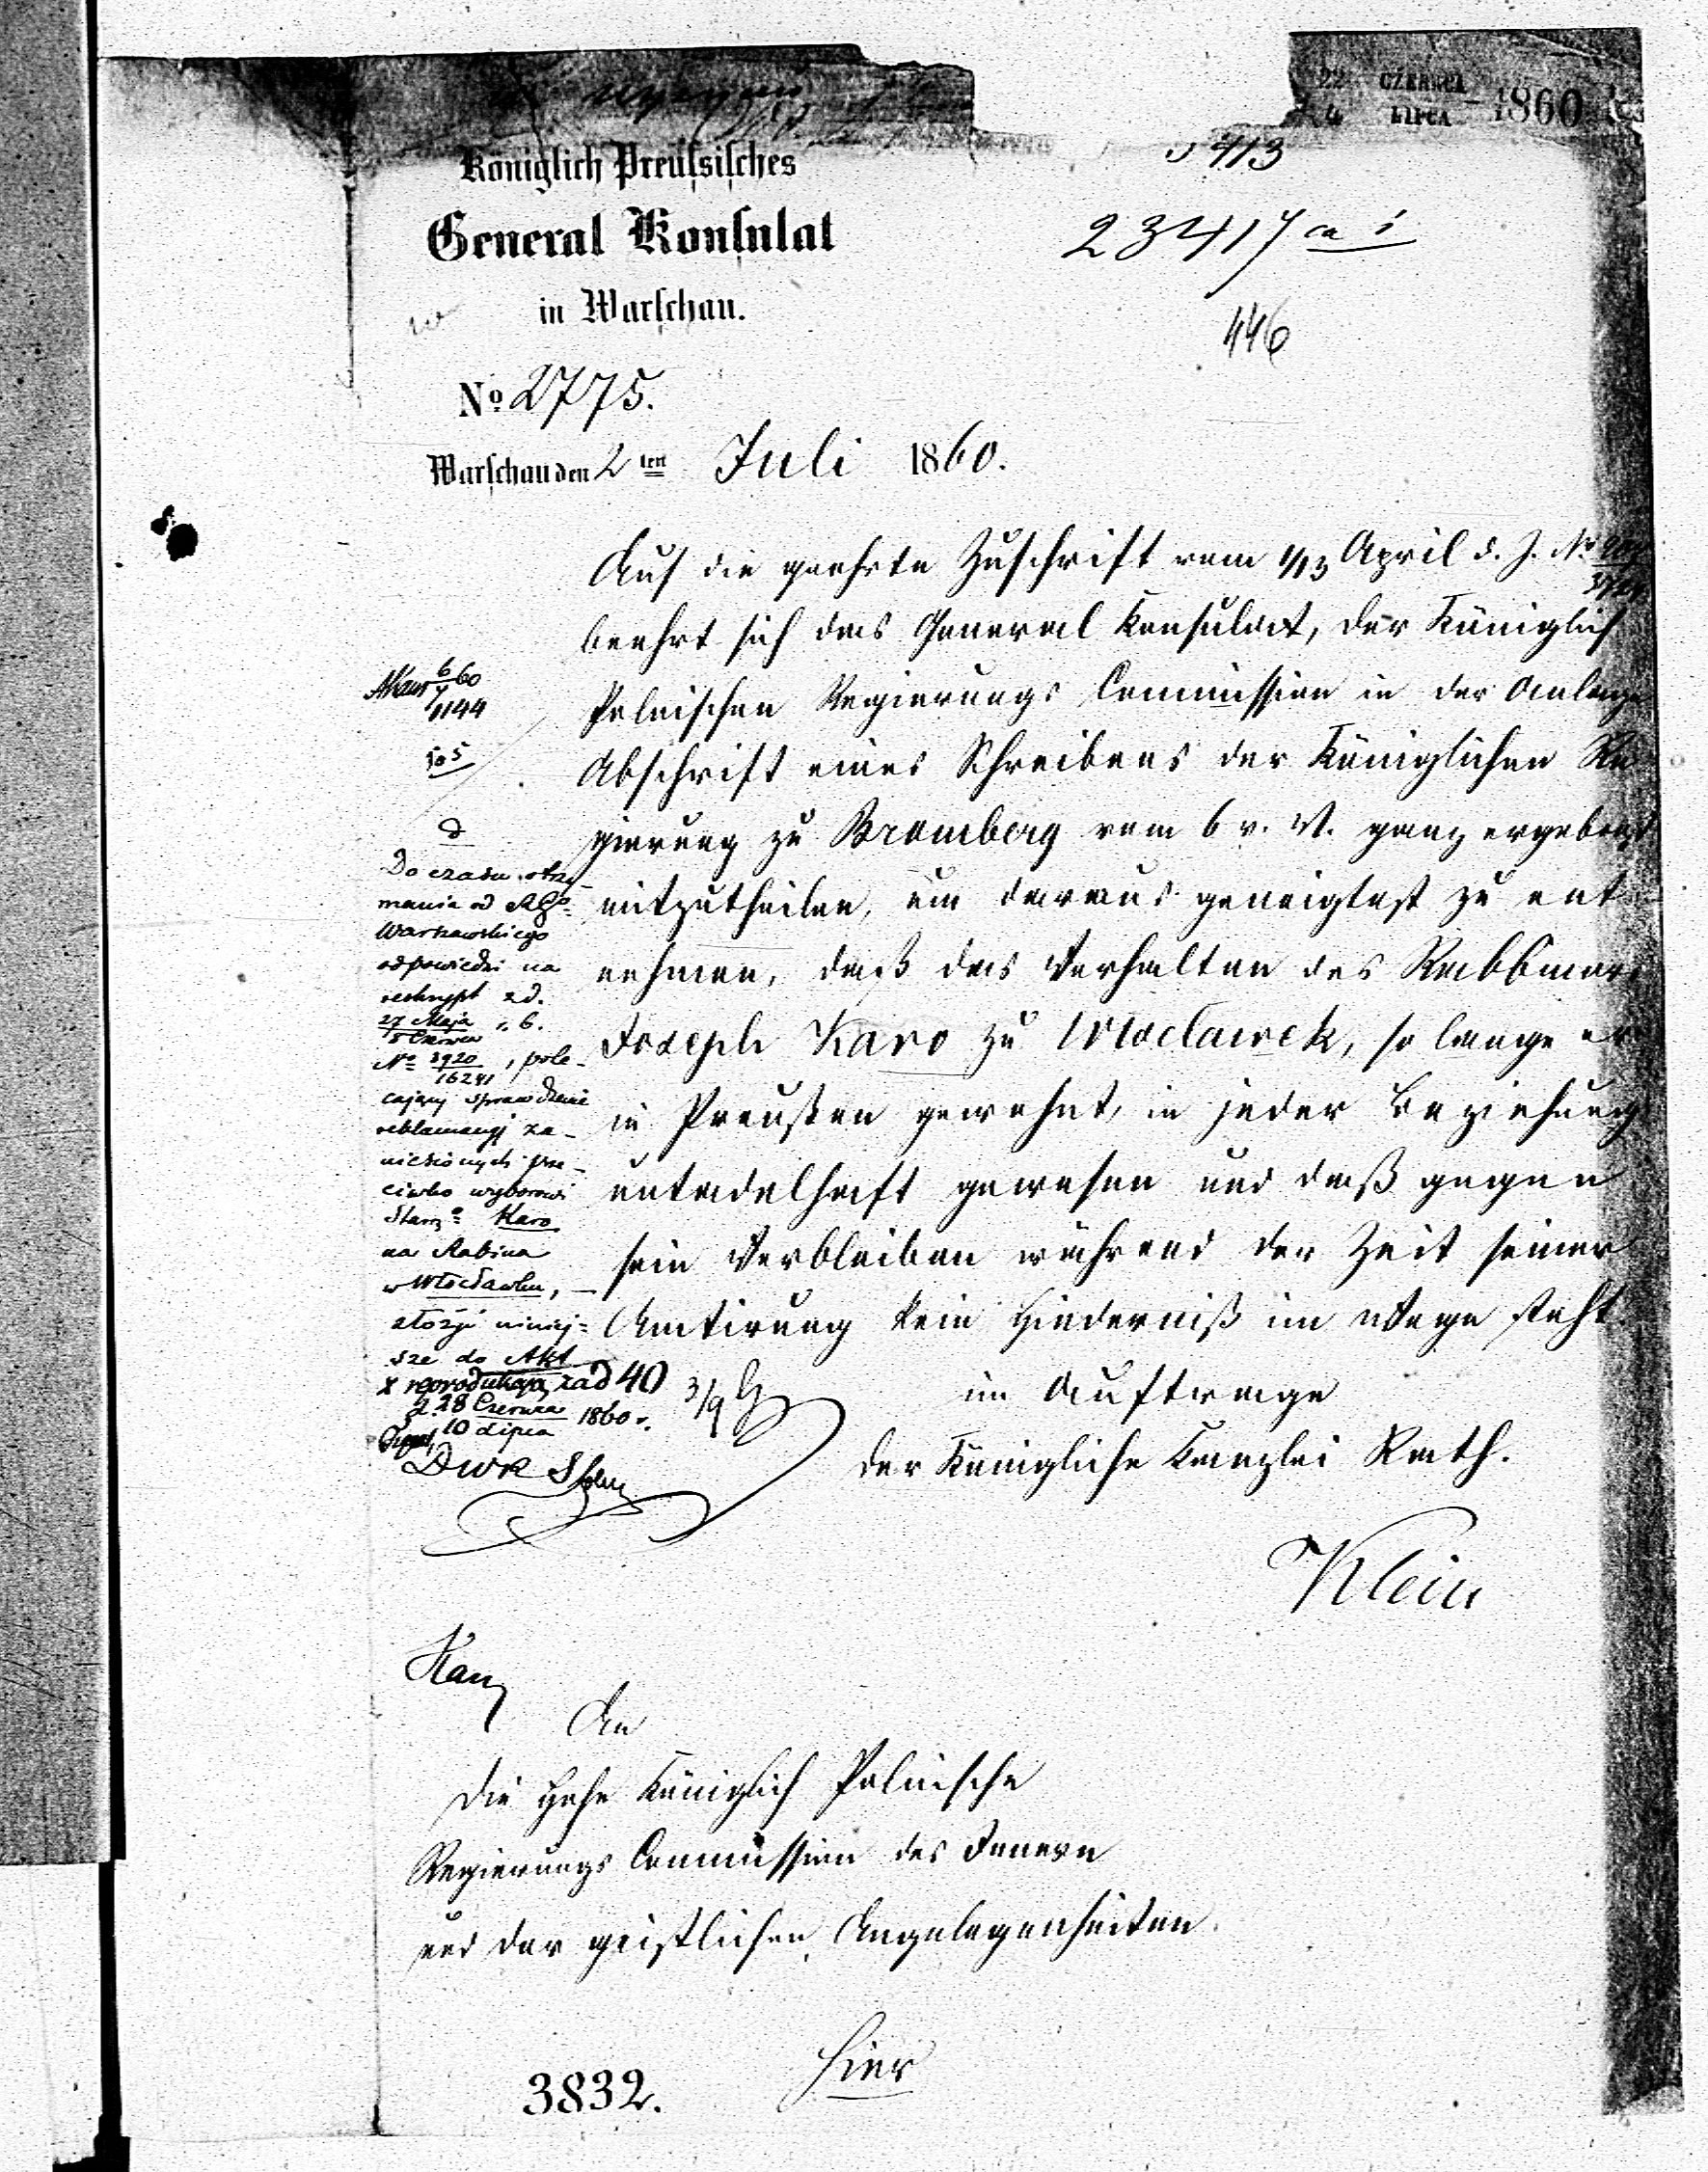 22 CZERWCA
4 LIPCA 1860
413
Königlich Preuſsiſches
General Konſulat
in Warſchau.
23417
446
No. 2775.
Warſchau den 2ten Juli 1860.
Auf die geehrte Zuschrift vom 1/13 April d. J. No
beehrt sich das General Konsulat, der Königlich
Polnischen Regierungs Commission in der Anlage
Abschrift eines Schreibens der Königlichen Re
gierung zu Bromberg vom 6 v. M. ganz ergebenst
mitzutheilen, um daraus geneigtest zu ent
nehmen, daß das Verhalten des Rabbiners
Joseph Karo zu Wloclawek, so lange er
in Preußen gewohnt, in jeder Beziehung
untadelhaft gewesen und daß gegen
sein Verbleiben während der Zeit seiner
Amtirung kein Hinderniß im Wege steht.
im Auftrage
der Königliche Kanzlei Rath.
Klein
6 60
1144
505
Do czasu otrzy
mania od
Warszawskiego
odpowiedzi na
reskrypt zd.
27 Maja
8 Czerwca r. b.
No 3920
16241, pole-
cający sprawdzenie
reklamacyj za-
niesionych prze-
ciwko wyborowi
Starz. Karo
na Rabina
w Włocławku, —
złożyć niniej-
sze do Akt
x reprodukcją zad 40
d. 28 Czerwca
10 Lipca 1860 r.
An
die Hohe Königlich Polnische
Regierungs Commission des Innern
und der geistlichen Angelegenheiten
Hier
3832.